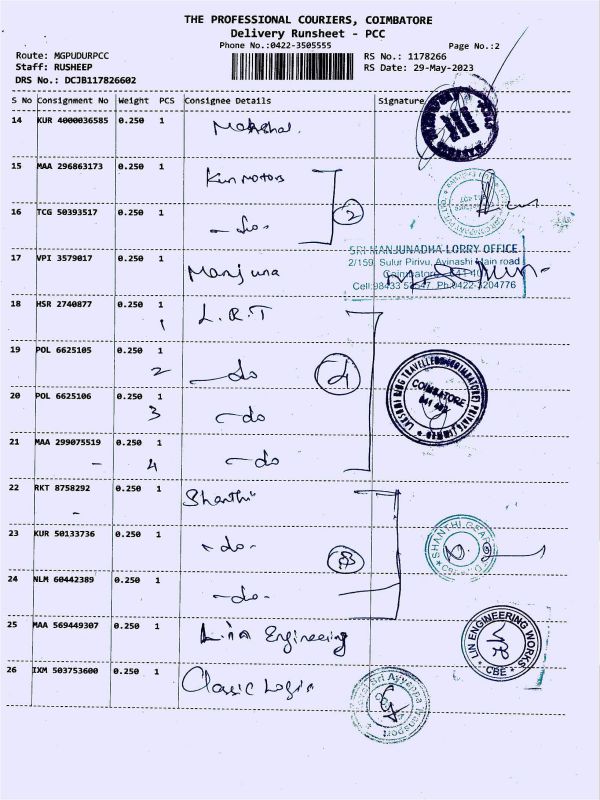 THE PROFESSIONAL COURIERS, COIMBATORE
Delivery Runsheet - PCC
Phone No.:0422-3505555
Page No.:2
Route: MGPUDURPCC
RS No.: 1178266
Staff: RUSHEEP
RS Date: 29-May-2023
DRS No.: DCJB117826602
S No Consignment No Weight PCS Consignee Details Signature
14 KUR 4000036585 0.250 1
15 MAA 296863173 0.250 1 Kun motors
16 TCG 50393517 0.250 1 - do - 2
17 VPI 3579017 0.250 1 Manjuna
SRI MANJUNADHA LORRY OFFICE
2/159, Sulur Pirivu, Avinashi Main road
Coimbatore
Ph:0422-2204776
18 HSR 2740877 0.250 1 L.R.T
1
19 POL 6625105 0.250 1 - do 4
2
20 POL 6625106 0.250 1 - do
3
COIMBATORE
21 MAA 299075519 0.250 1 - do
- 4
22 RKT 8758292 0.250 1 Shanthi
-
23 KUR 50133736 0.250 1 - do - 3
SHANTHI GEAR
24 NLM 60442389 0.250 1 - do -
25 MAA 569449307 0.250 1 Lin Engineering
LIN ENGINEERING WORKS
CBE
26 IXM 503753600 0.250 1 Classic Login
Sri Ayyappa Transport